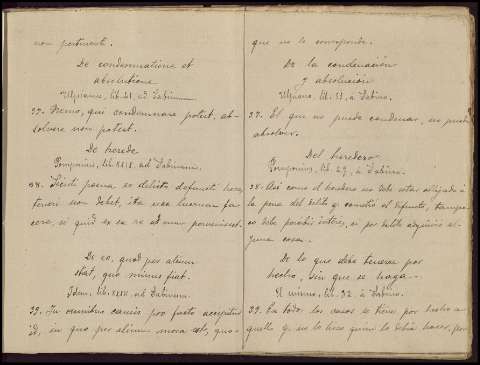 non pertinenti.
De condemnatione et
absolutione
Ulpianus, lib. 41, ad Sabinum
37. Nemo, qui condemnare potest, ab-
solvere non potest.
De herede
Pomponius, lib. XXIX. ad Sabinum.
38. Sicuti poena ex delicto defuncti heres
teneri non debet, ita nec lucrum fa-
cere, si quid ex ea re ad eum pervenisset.
De eo, quod per alium
stat, quo minus fiat.
Idem, lib. XXXII ad Sabinum.
39. In omnibus causis pro facto accipitur
id, in quo per alium mora sit, quo-
que no le corresponde.
De la condenación
y absolución
Ulpiano, lib. 41, á Sabino.
37. El que no puede condenar, no puede
absolver.
Del heredero
Pomponio, lib. 29, á Sabino.
38. Asi como el heredero no debe estar obligado á
la pena del delito q. cometió el difunto, tampo-
co debe percibir interés, si por delito adquirió al-
guna cosa.
De lo que debe tenerse por
hecho, sin que se haga.
El mismo, lib. 32, á Sabino.
39. En todos los casos se tiene por hecho a-
quello q. no lo hizo quien lo debia hacer, por